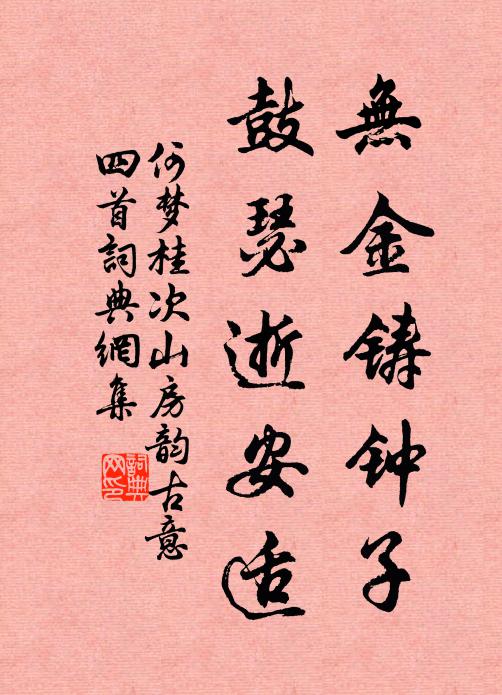 無金铸钟子
鼓瑟逝安适
何梦桂次山房韵古意
四首詞典網集
詞典
网印